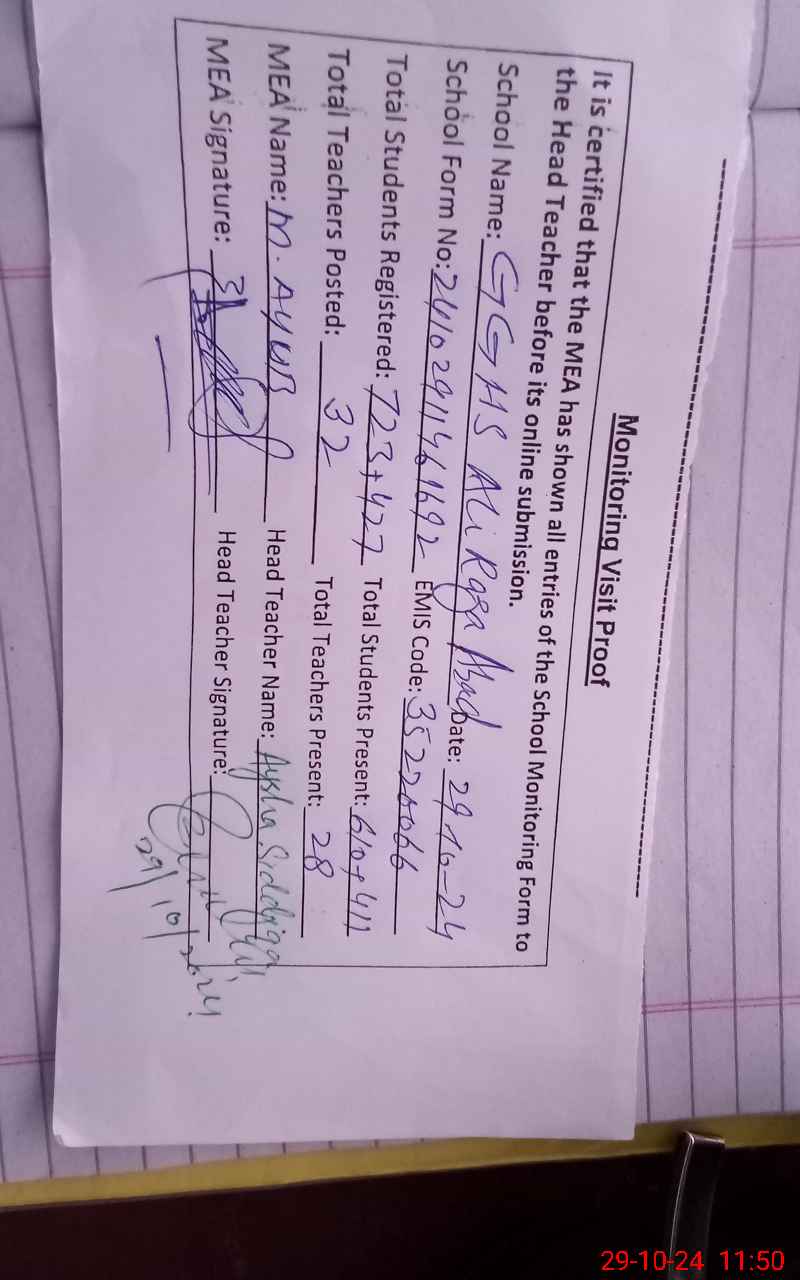 Monitoring Visit Proof
It is certified that the MEA has shown all entries of the School Monitoring Form to
the Head Teacher before its online submission.
School Name: GGHS Ali Raza Abad Date: 29-10-24
School Form No: EMIS Code:
Total Students Registered: 723+427 Total Students Present: 610+411
Total Teachers Posted: 32 Total Teachers Present: 28
MEA Name: M. AYUB Head Teacher Name: Aysha Siddiqa
MEA Signature: Head Teacher Signature:
29/10/2024
29-10-24 11:50